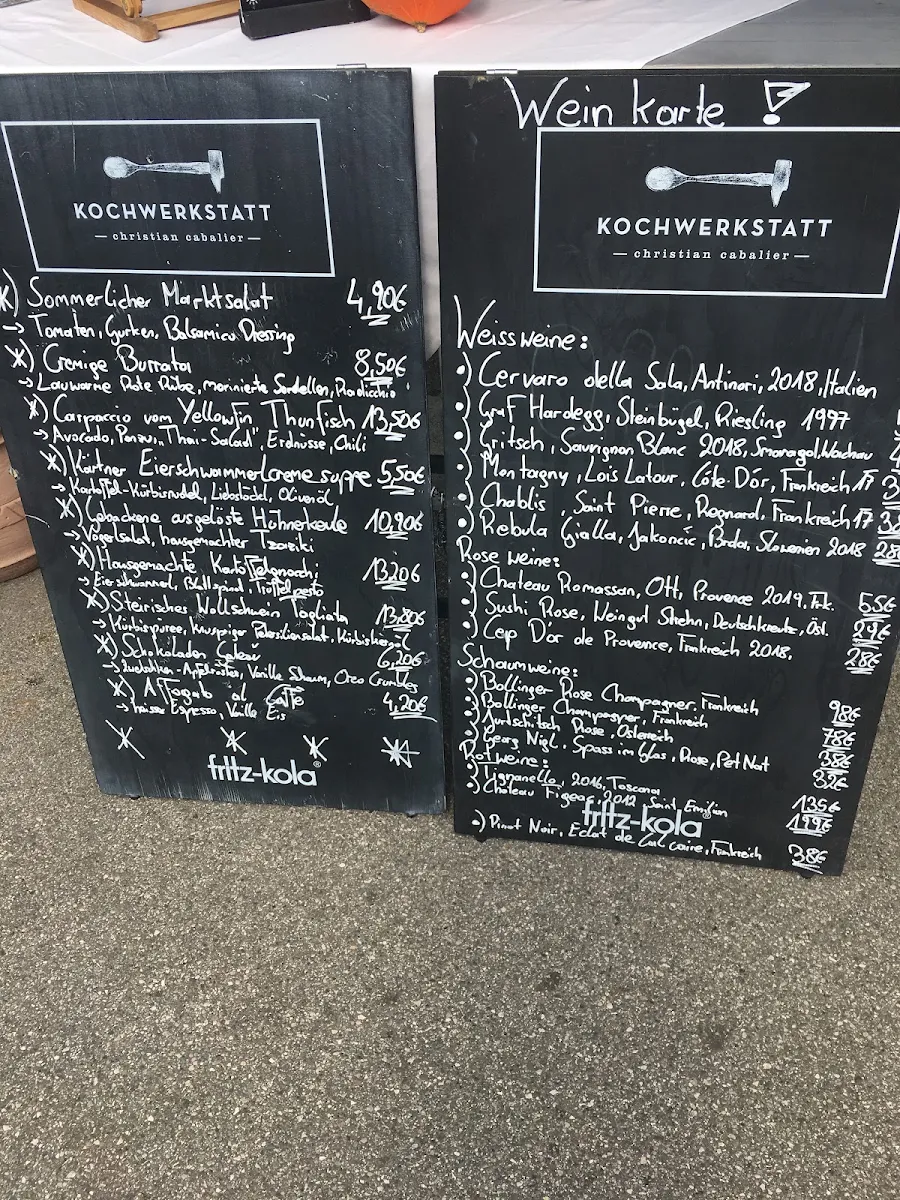 KOCHWERKSTATT
— christian cabalier —
*) Sommerlicher Marktsalat 4,90€
→ Tomaten, Gurken, Balsamico Dressing
*) Cremige Burrata 8,50€
→ Lauwarme Rote Rübe, marinierte Sardellen, Radicchio
*) Carpaccio vom Yellowfin Thunfisch 13,50€
→ Avocado, Ponzu, "Thai-Salad", Erdnüsse, Chili
*) Kärtner Eierschwammerlcremesuppe 5,50€
→ Kartoffel-Kürbisnudel, Liebstöckl, Olivenöl
*) Gebackene ausgelöste Hühnerkeule 10,90€
→ Vogerlsalat, hausgemachter Tzaziki
*) Hausgemachte Kartoffelgnocchi 13,20€
→ Eierschwammerl, Blattspinat, Trüffelpesto
*) Steirisches Wollschwein Tagliata 13,80€
→ Kürbispüree, knuspriger Petersiliensalat, Kürbiskernöl
*) Schokoladen Gateau 6,20€
→ Zwetschken-Apfelröster, Vanille Schaum, Oreo Crumbles
*) Affogato al Caffè 4,20€
→ heisser Espresso, Vanille Eis
fritz-kola®
Wein karte !
KOCHWERKSTATT
— christian cabalier —
Weissweine:
•) Cervaro della Sala, Antinori, 2018, Italien
•) Graf Hardegg, Steinbügel, Riesling 1997
•) Gritsch, Sauvignon Blanc 2018, Smaragd, Wachau
•) Montagny, Lois Latour, Côte D'or, Frankreich 17
•) Chablis, Saint Pierre, Regnard, Frankreich 17
•) Rebula Gialla, Jakoncic, Brda, Slowenien 2018 28€
Rose weine:
•) Chateau Romassan, Ott, Provence 2019, Frk. 55€
•) Sushi Rose, Weingut Strehn, Deutschkreutz, Öst. 29€
•) Cep D'or de Provence, Frankreich 2018. 28€
Schaumweine:
•) Bollinger Rose Champagner, Frankreich 98€
•) Bollinger Champagner, Frankreich 78€
•) Jurtschitsch Rose, Österreich 38€
•) Georg Nigl, Spass im Glas, Rose, Pet Nat 32€
Rotweine:
•) Tignanello, 2016, Toscana 135€
•) Château Figeac, 2012, Saint Emilion 199€
fritz-kola
•) Pinot Noir, Eclat de Calcaire, Frankreich 38€